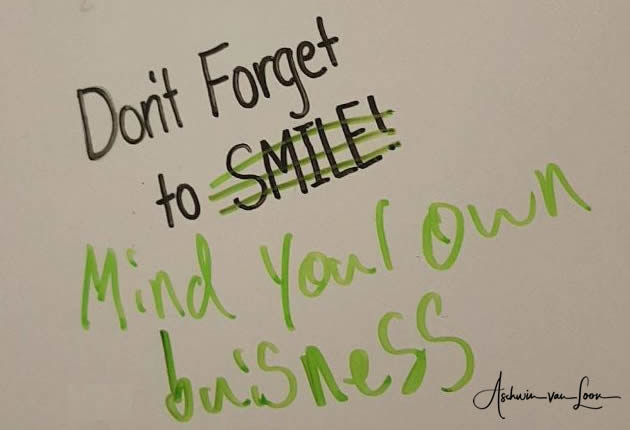 Don't Forget
to SMILE!
Mind your own
buisness
Aschwin van Loon